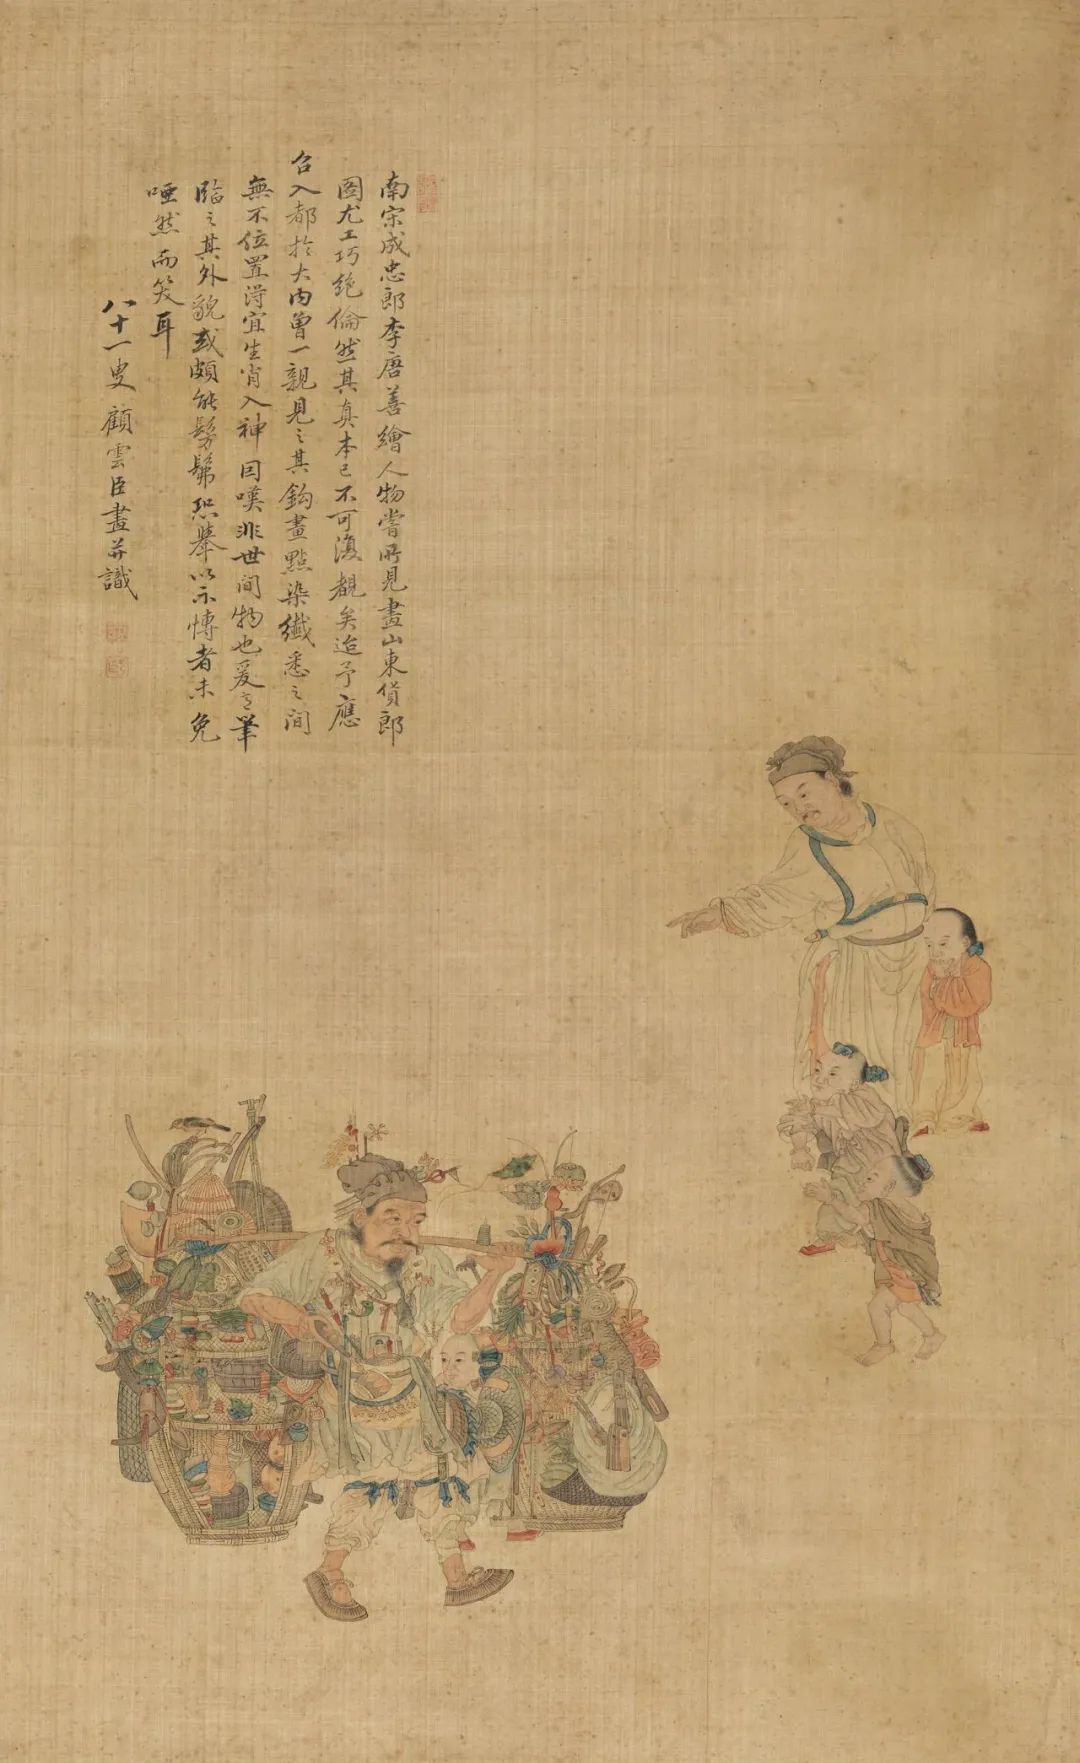 南宋成忠郎李唐善繪人物嘗所見畫山東貨郎
圖尤工巧絶倫然其真本已不可復覩矣迨予應
召入都於大内曾一親見之其鈎畫點染纖悉之間
無不位置得宜生肖入神因嘆非世間物也爰
臨之其外貌或頗能髣髴恐舉以示慱者未免
唖然而笑耳
八十一叟顧雲臣畫并識